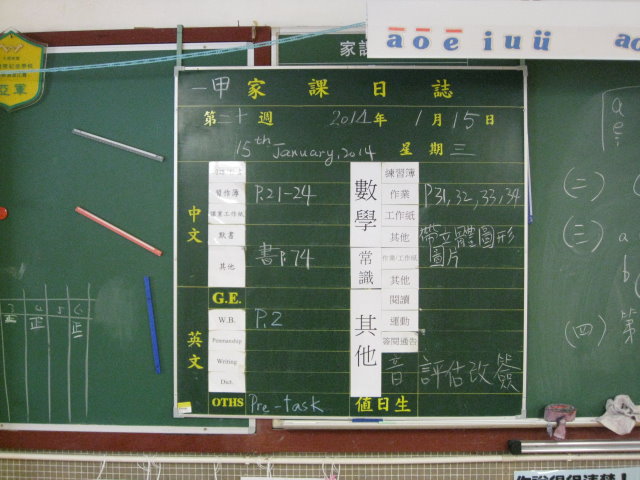 āōē iuü
家課
亞軍
一甲家課日誌
第二十週 2014年 1月15日
15th January, 2014 星期三
中文
習作簿 P.21-24
課業工作紙
默書
其他 書P.74
G.E.
英文
W.B. P.2
Penmanship
Writing
Dict.
OTHS Pre-task
數學
練習簿
作業 P31, 32, 33, 34
工作紙
其他 帶立體圖形
圖片
常識
作業/工作紙
其他
其他
閱讀
運動
簽閱通告
音 評估改簽
值日生
a
e
(二)
(三) a
b
(四) 第